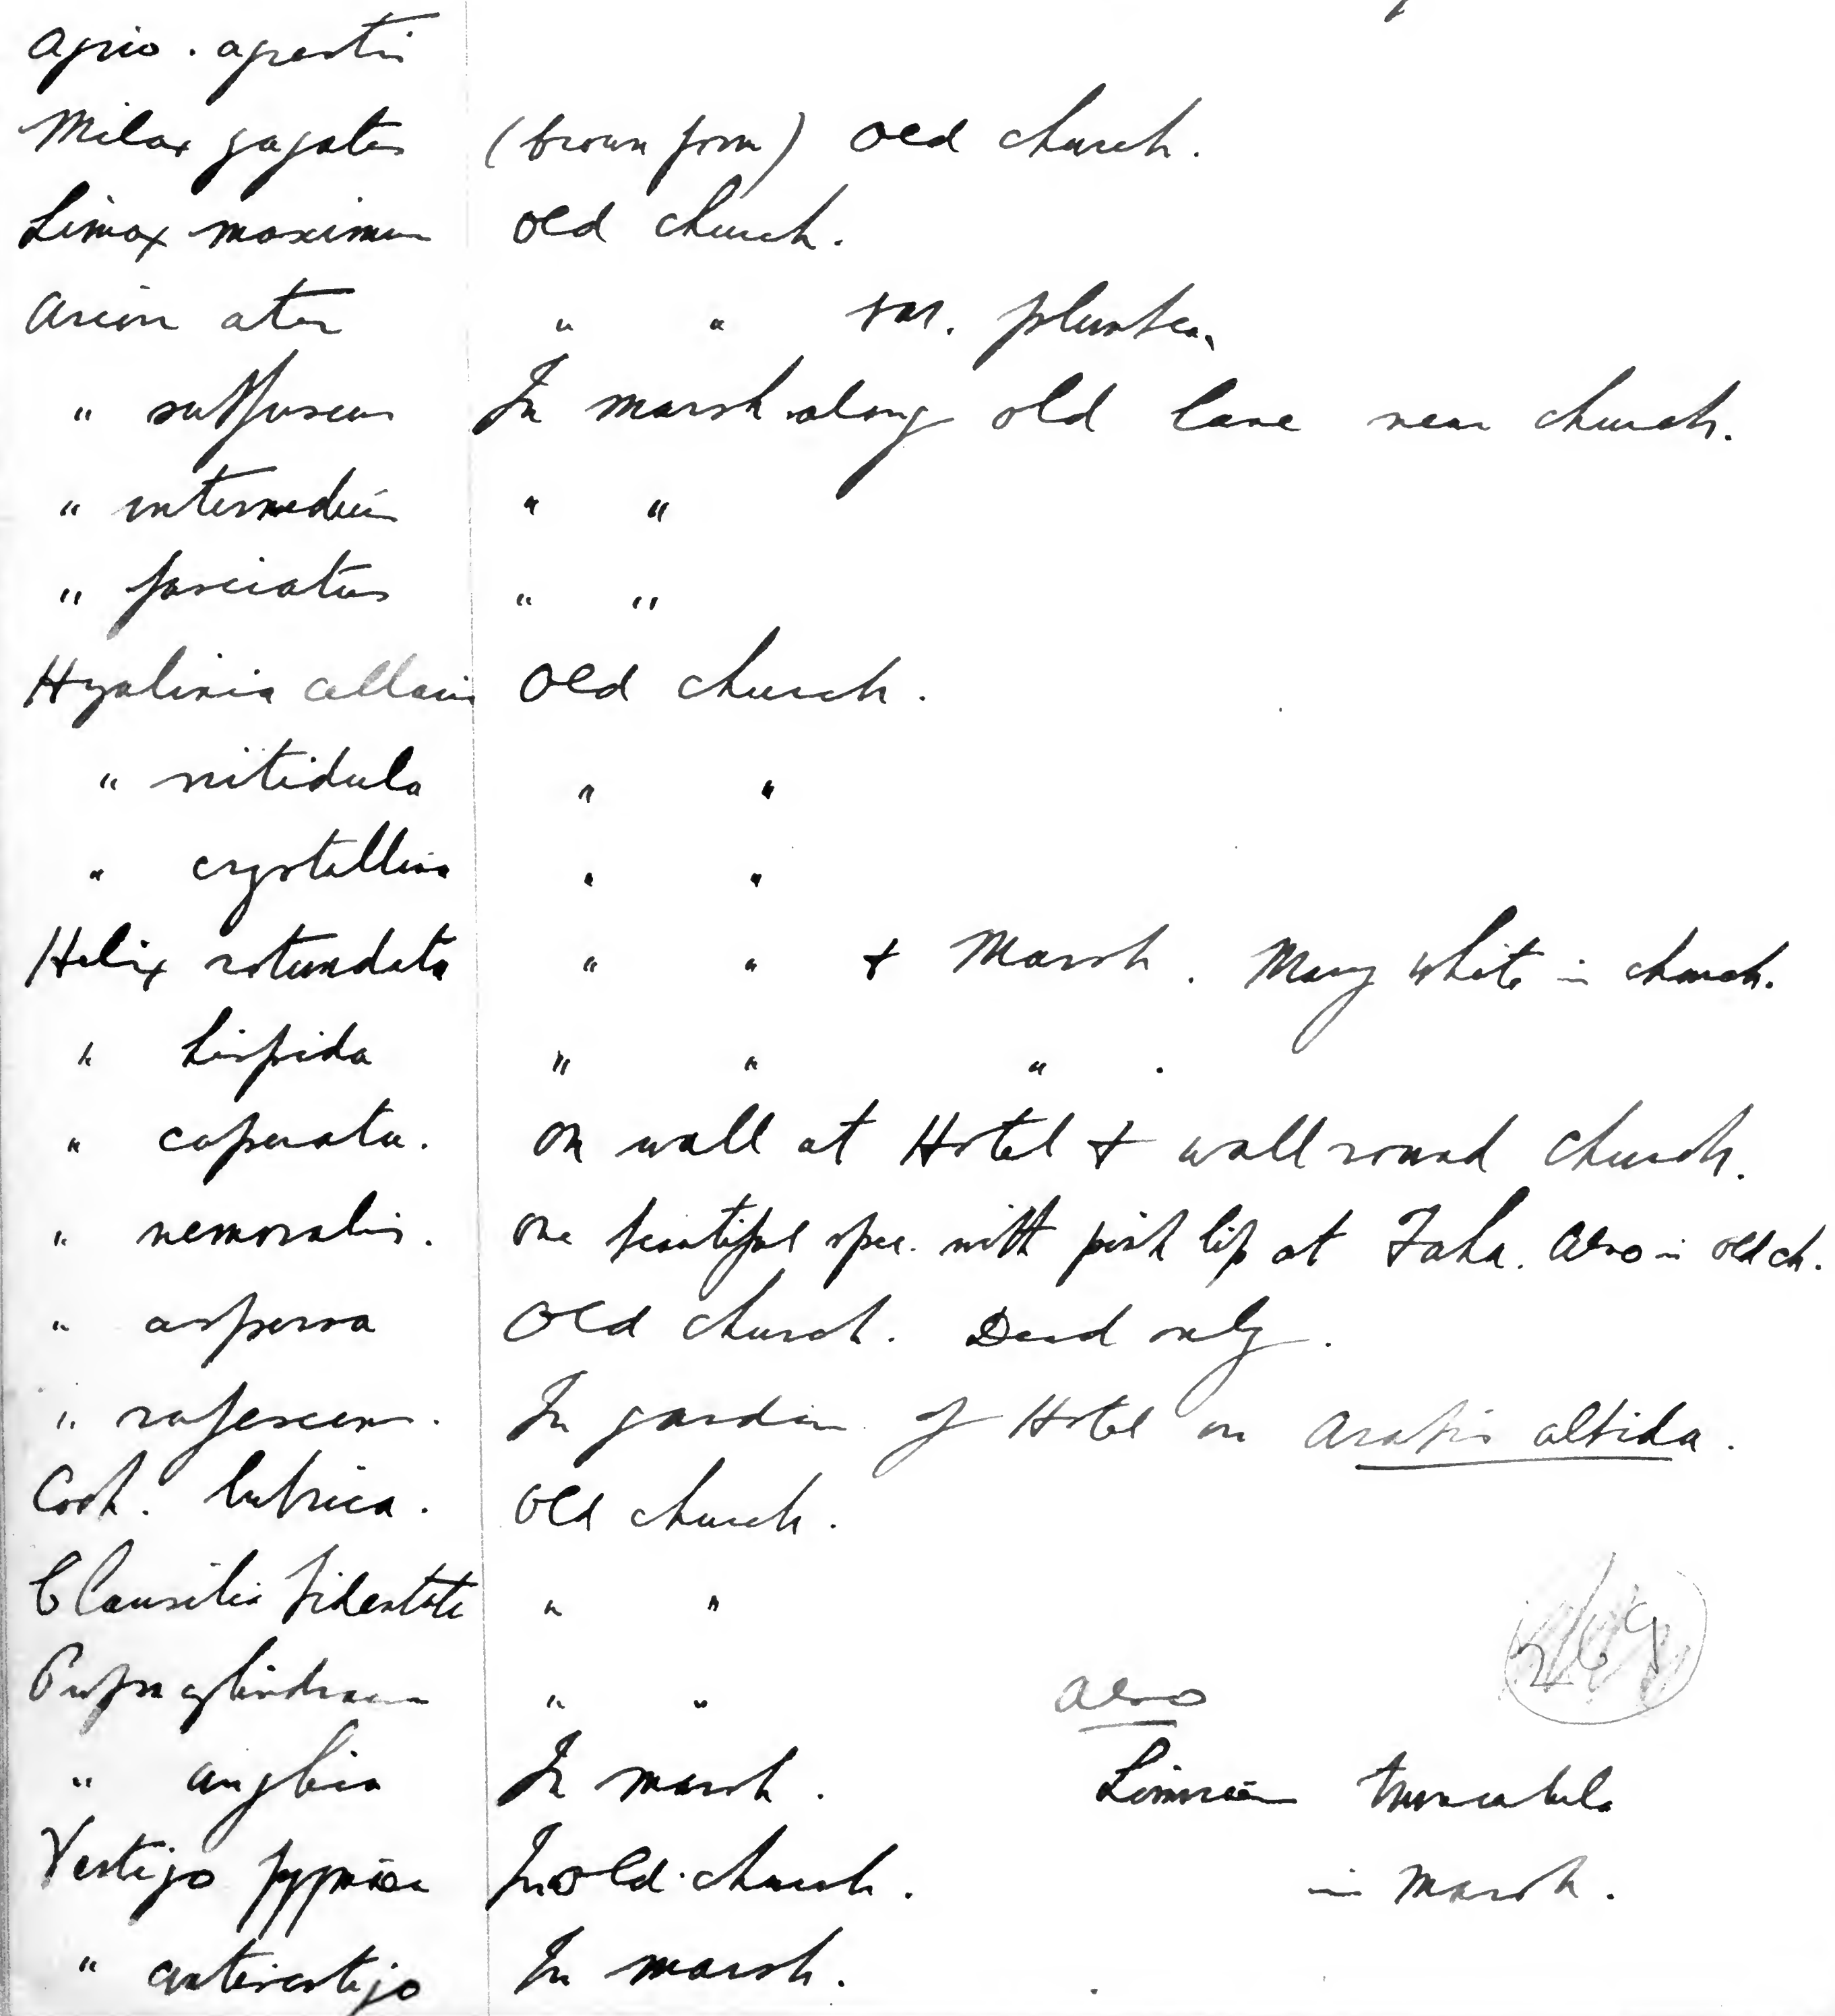 Agrio. agrestis
Milax gagates (brown form) Old church.
Limax maximus Old church.
Arion ater " " var. plumbea.
" subfuscus In marsh along old lane near church.
" intermedius " "
" fasciatus " "
Hyalinia cellaria Old church.
" nitidula " "
" crystallina " "
Helix rotundata " " + Marsh. Many white in church.
" hispida " " " .
" caperata. On wall at Hotel + wall round church.
" nemoralis. One beautiful spec. with pink lip at Faha. Also in old ch.
" aspersa Old church. Dead only.
" rufescens. In garden of Hotel on Arabis albida.
Coch. lubrica. Old church.
Clausilia bidentata " "
Pupa cylindracea " " Also
" anglica In marsh. Limnaea truncatula
Vertigo pygmaea In old church. in marsh.
" antivertigo In marsh.